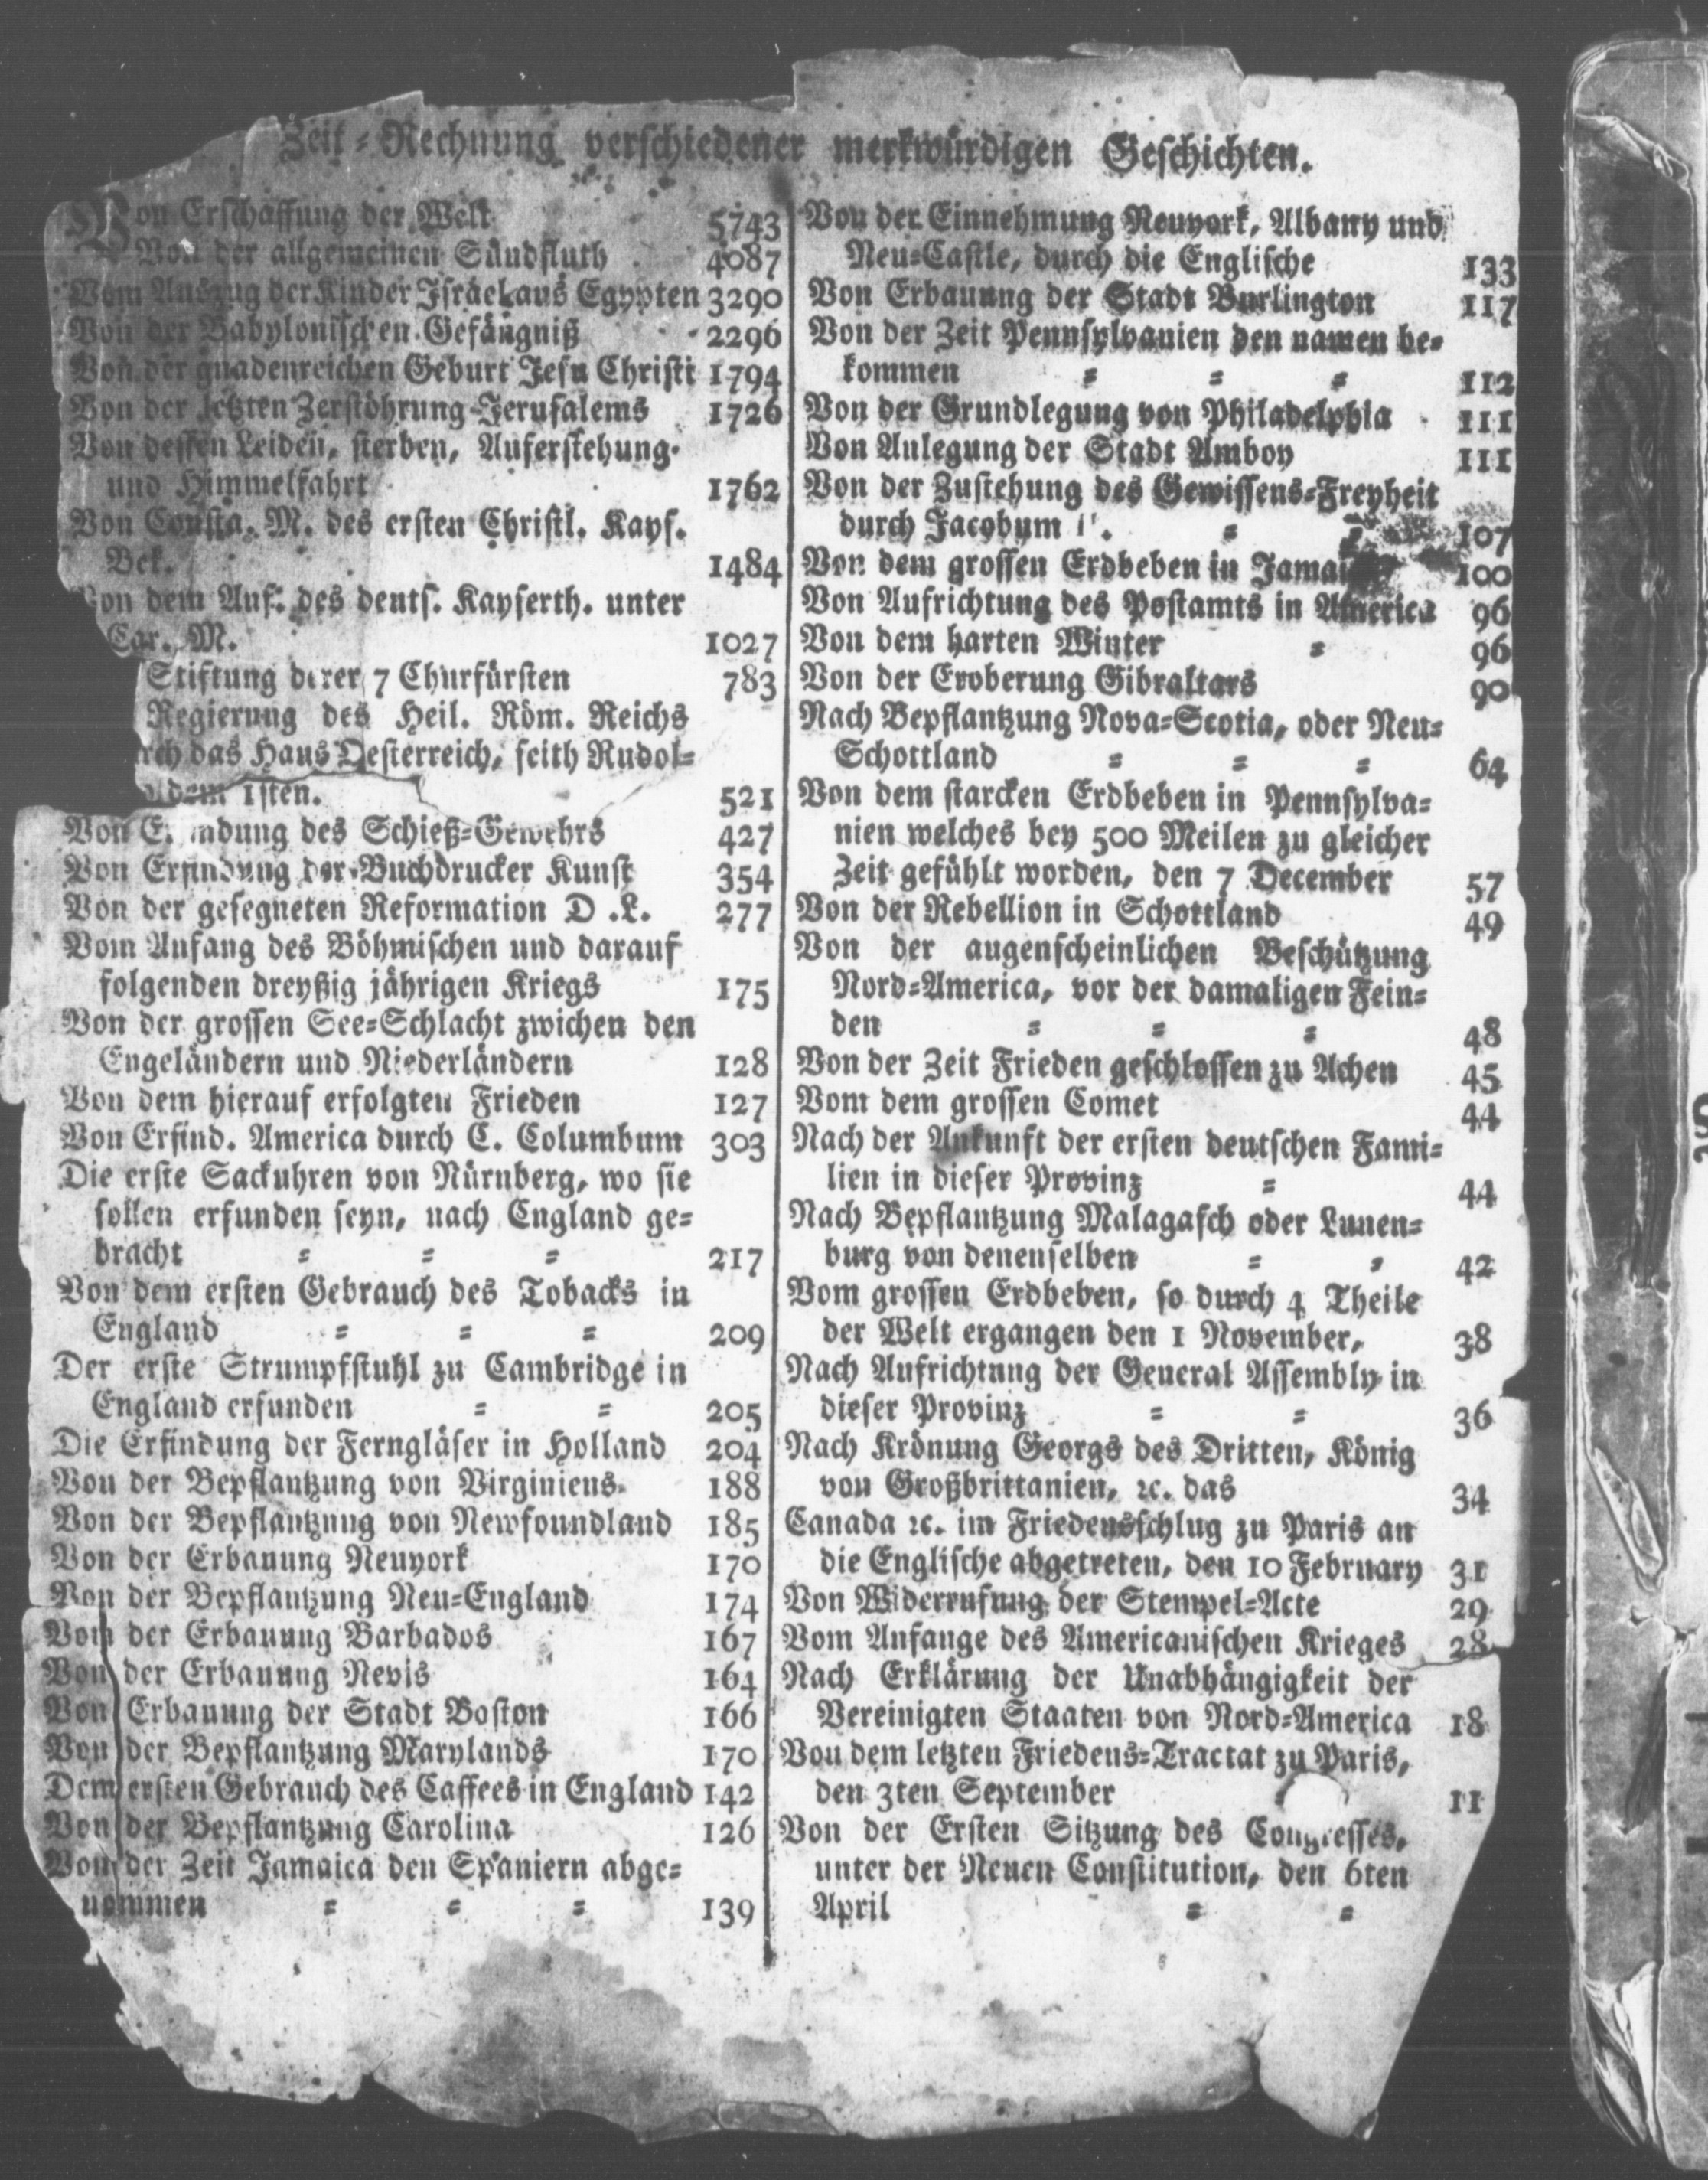 Zeit-Rechnung verschiedener merkwürdigen Geschichten.
Von Erschaffung der Welt 5743
Von der allgemeinen Sündfluth 4087
Vom Auszug der Kinder Israel aus Egypten 3290
Von der Babylonischen Gefängniß 2296
Von der gnadenreichen Geburt Jesu Christi 1794
Von der letzten Zerstöhrung Jerusalems 1726
Von dessen Leiden, sterben, Auferstehung
und Himmelfahrt 1762
Von Consta. M. des ersten Christl. Kays.
Bek. 1484
Von dem Anf. des deuts. Kayserth. unter
Car. M. 1027
Stiftung derer 7 Churfürsten 783
Regierung des Heil. Röm. Reichs
das Haus Oesterreich, seith Rudol-
dem 1sten. 521
Von Erfindung des Schieß-Gewehrs 427
Von Erfindung der Buchdrucker Kunst 354
Von der gesegneten Reformation D .L. 277
Vom Anfang des Böhmischen und darauf
folgenden dreyßig jährigen Kriegs 175
Von der grossen See-Schlacht zwichen den
Engeländern und Niederländern 128
Von dem hierauf erfolgten Frieden 127
Von Erfind. America durch C. Columbum 303
Die erste Sackuhren von Nürnberg, wo sie
sollen erfunden seyn, nach England ge-
bracht = = = 217
Von dem ersten Gebrauch des Tobacks in
England = = = 209
Der erste Strumpfstuhl zu Cambridge in
England erfunden = = 205
Die Erfindung der Ferngläser in Holland 204
Von der Bepflantzung von Virginiens 188
Von der Bepflantzung von Newfoundland 185
Von der Erbauung Neuyork 170
Von der Bepflantzung Neu-England 174
Von der Erbauung Barbados 167
Von der Erbauung Nevis 164
Von Erbauung der Stadt Boston 166
Von der Bepflantzung Marylands 170
Dem ersten Gebrauch des Caffees in England 142
Von der Bepflantzung Carolina 126
Von der Zeit Jamaica den Spaniern abge-
nommen = = = 139
Von der Einnehmung Neuyork, Albany und
Neu-Castle, durch die Englische 133
Von Erbauung der Stadt Burlington 117
Von der Zeit Pennsylvanien den namen be-
kommen = = = 112
Von der Grundlegung von Philadelphia 111
Von Anlegung der Stadt Amboy 111
Von der Zustehung des Gewissens-Freyheit
durch Jacobum = 107
Von dem grossen Erdbeben in 100
Von Aufrichtung des Postamts in America 96
Von dem harten Winter = 96
Von der Eroberung Gibraltars 90
Nach Bepflantzung Nova-Scotia, oder Neu-
Schottland = = = 64
Von dem starcken Erdbeben in Pennsylva-
nien welches bey 500 Meilen zu gleicher
Zeit gefühlt worden, den 7 December 57
Von der Rebellion in Schottland 49
Von der augenscheinlichen Beschützung
Nord-America, vor der damaligen Fein-
den = = = 48
Von der Zeit Frieden geschlossen zu Achen 45
Vom dem grossen Comet 44
Nach der Ankunft der ersten deutschen Fami-
lien in dieser Provinz = 44
Nach Bepflantzung Malagasch oder Lunen-
burg von denenselben = = 42
Vom grossen Erdbeben, so durch 4 Theile
der Welt ergangen den 1 November, 38
Nach Aufrichtung der General Assembly in
dieser Provinz = = 36
Nach Krönung Georgs des Dritten, König
von Großbrittanien, ꝛc. das 34
Canada ꝛc. im Friedensschlug zu Paris an
die Englische abgetreten, den 10 February 31
Von Widerrufung der Stempel-Acte 29
Vom Anfange des Americanischen Krieges 28
Nach Erklärung der Unabhängigkeit der
Vereinigten Staaten von Nord-America 18
Von dem letzten Friedens-Tractat zu Paris,
den 3ten September 11
Von der Ersten Sitzung des Congresses,
unter der Neuen Constitution, den 6ten
April = =